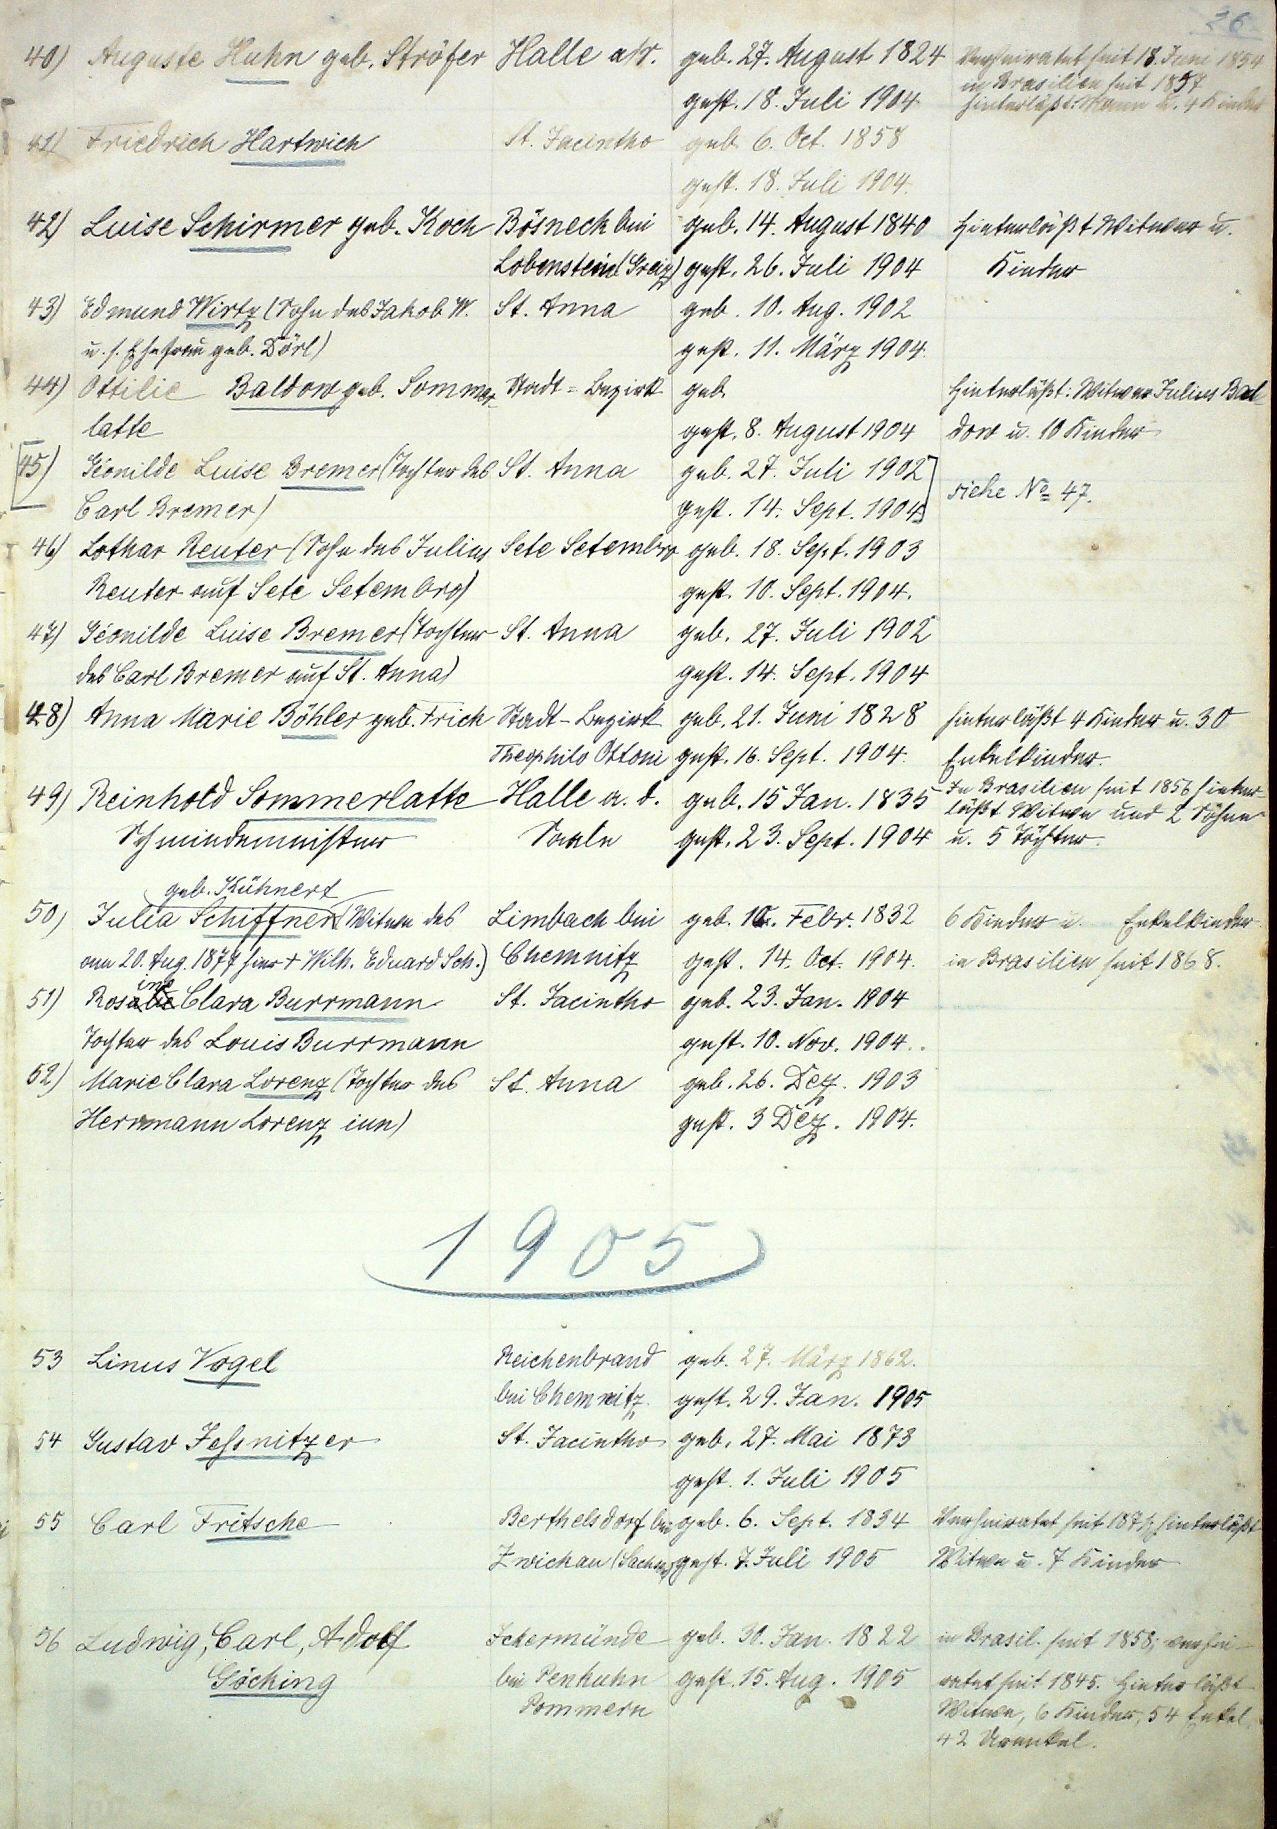 36
40) Auguste Huhn geb. Ströfer Halle a/S. geb. 27. August 1824 Verheiratet seit 18. Juni 1854
in Brasilien seit 1857
gest. 18. Juli 1904. hinterläßt: Mann u. 4 Kinder
41) Friedrich Hartwich St. Jacintho geb. 6. Oct. 1858
gest. 18. Juli 1904.
42) Luise Schirmer geb. Koch Bösneck bei geb. 14. August 1840 hinterläßt Witwer u.
Lobenstein (Greiz) gest. 26. Juli 1904 Kinder
43) Edmund Wirtz (Sohn des Jakob W. St. Anna geb. 10. Aug. 1902
u. s. Ehefrau geb. Dörl) gest. 11. März 1904.
44) Ottilie Baldow geb. Sommer- Stadt-Bezirk geb. hinterläßt: Witwer Julius Bal-
latte gest. 8. August 1904 dow u. 10 Kinder
45) Leonilde Luise Bremer (Tochter des St. Anna geb. 27. Juli 1902
siehe No 47.
Carl Bremer) gest. 14. Sept. 1904
46) Lothar Reuter (Sohn des Julius Sete Setembro geb. 18. Sept. 1903
Reuter auf Sete Setembro) gest. 10. Sept. 1904.
47) Leonilde Luise Bremer (Tochter St. Anna geb. 27. Juli 1902
des Carl Bremer auf St. Anna) gest. 14. Sept. 1904
48) Anna Marie Böhler geb. Frich Stadt-Bezirk geb. 21. Juni 1828 hinterläßt 4 Kinder u. 30
Theophilo Ottoni gest. 16. Sept. 1904. Enkelkinder.
49) Reinhold Sommerlatte Halle a. d. geb. 15 Jan. 1835 In Brasilien seit 1856 hinter-
läßt Witwe und 2 Söhne
Schmiedemeister Saale gest. 23. Sept. 1904 u. 5 Töchter.
geb. Kühnert
50) Julia Schiffner (Witwe des Limbach bei geb. Febr. 1832 6 Kinder u. Enkelkinder
am 20. Aug. 1877 hier + Wilh. Eduard Sch.) Chemnitz gest. 14. Oct. 1904. in Brasilien seit 1868.
ine
51) Rosalie Clara Burrmann St. Jacintho geb. 23. Jan. 1904
Tochter des Louis Burrmann gest. 10. Nov. 1904.
52) Marie Clara Lorenz (Tochter des St. Anna geb. 26. Dez. 1903
Herrmann Lorenz iun) gest. 3 Dez. 1904.
1905
53 Linus Vogel Reichenbrand geb. 27. März 1862.
bei Chemnitz. gest. 29. Jan. 1905
54 Gustav Jessnitzer St. Jacintho geb. 27. Mai 1873
gest. 1. Juli 1905
55 Carl Fritsche Berthelsdorf bei geb. 6. Sept. 1834 Verheiratet seit hinterläßt
Zwickau (Sachsen) gest. 7. Juli 1905 Witwe u. 7 Kinder
56 Ludwig, Carl, Adolf Ickermünde geb. 30. Jan. 1822 in Brasil. seit 1858; verhei-
Göching bei Penkuhn gest. 15. Aug. 1905 ratet seit 1845. Hinterläßt
Pommern Witwe, 6 Kinder, 54 Enkel,
42 Urenkel.